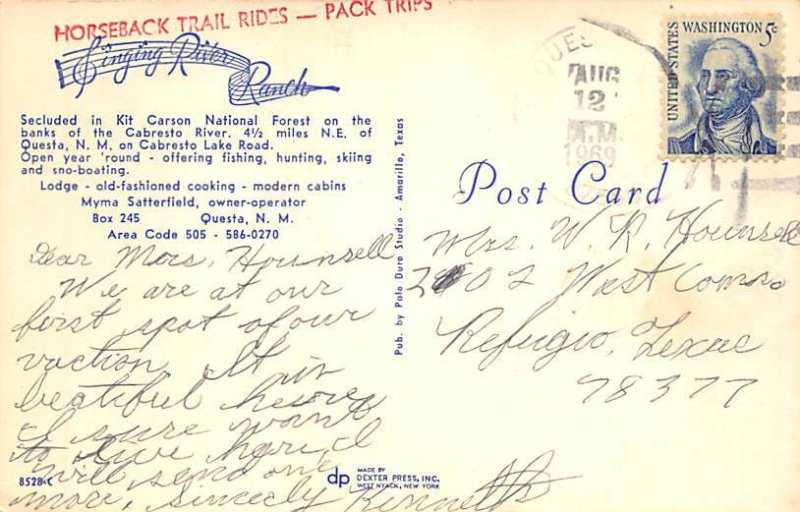 HORSEBACK TRAIL RIDES — PACK TRIPS
Singing River
Ranch
Secluded in Kit Carson National Forest on the
banks of the Cabresto River. 4½ miles N.E. of
Questa, N. M. on Cabresto Lake Road.
Open year 'round - offering fishing, hunting, skiing
and sno-boating.
Lodge - old-fashioned cooking - modern cabins
Myrna Satterfield, owner-operator
Box 245 Questa, N. M.
Area Code 505 - 586-0270
Dear Mrs. Hounsell
We are at our
first spot of our
vaction. It is
beatiful here
I sure want
to live here, I
will send one
more, Sincerly Kenneth
8528-C
Pub. by Palo Duro Studio - Amarillo, Texas
dp MADE BY
DEXTER PRESS, INC.
WEST NYACK, NEW YORK
QUES
AUG
12
A.M.
1969
UNITED STATES
WASHINGTON 5c
Post Card
Mrs. W. R. Hounsell
2402 West Commo
Refugio, Texas
78377